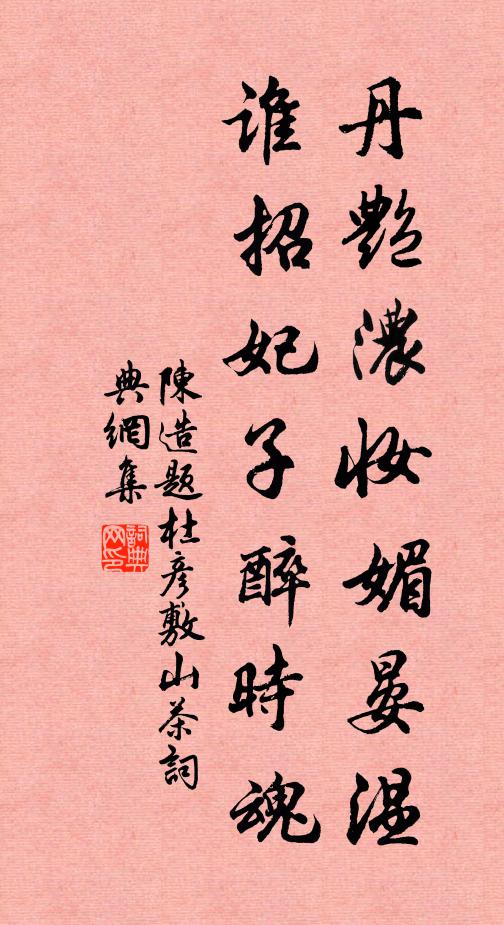 丹艷濃妝媚晏温
谁招妃子醉時魂
陳造題杜彦敷山茶詞
典網集
詞典网印